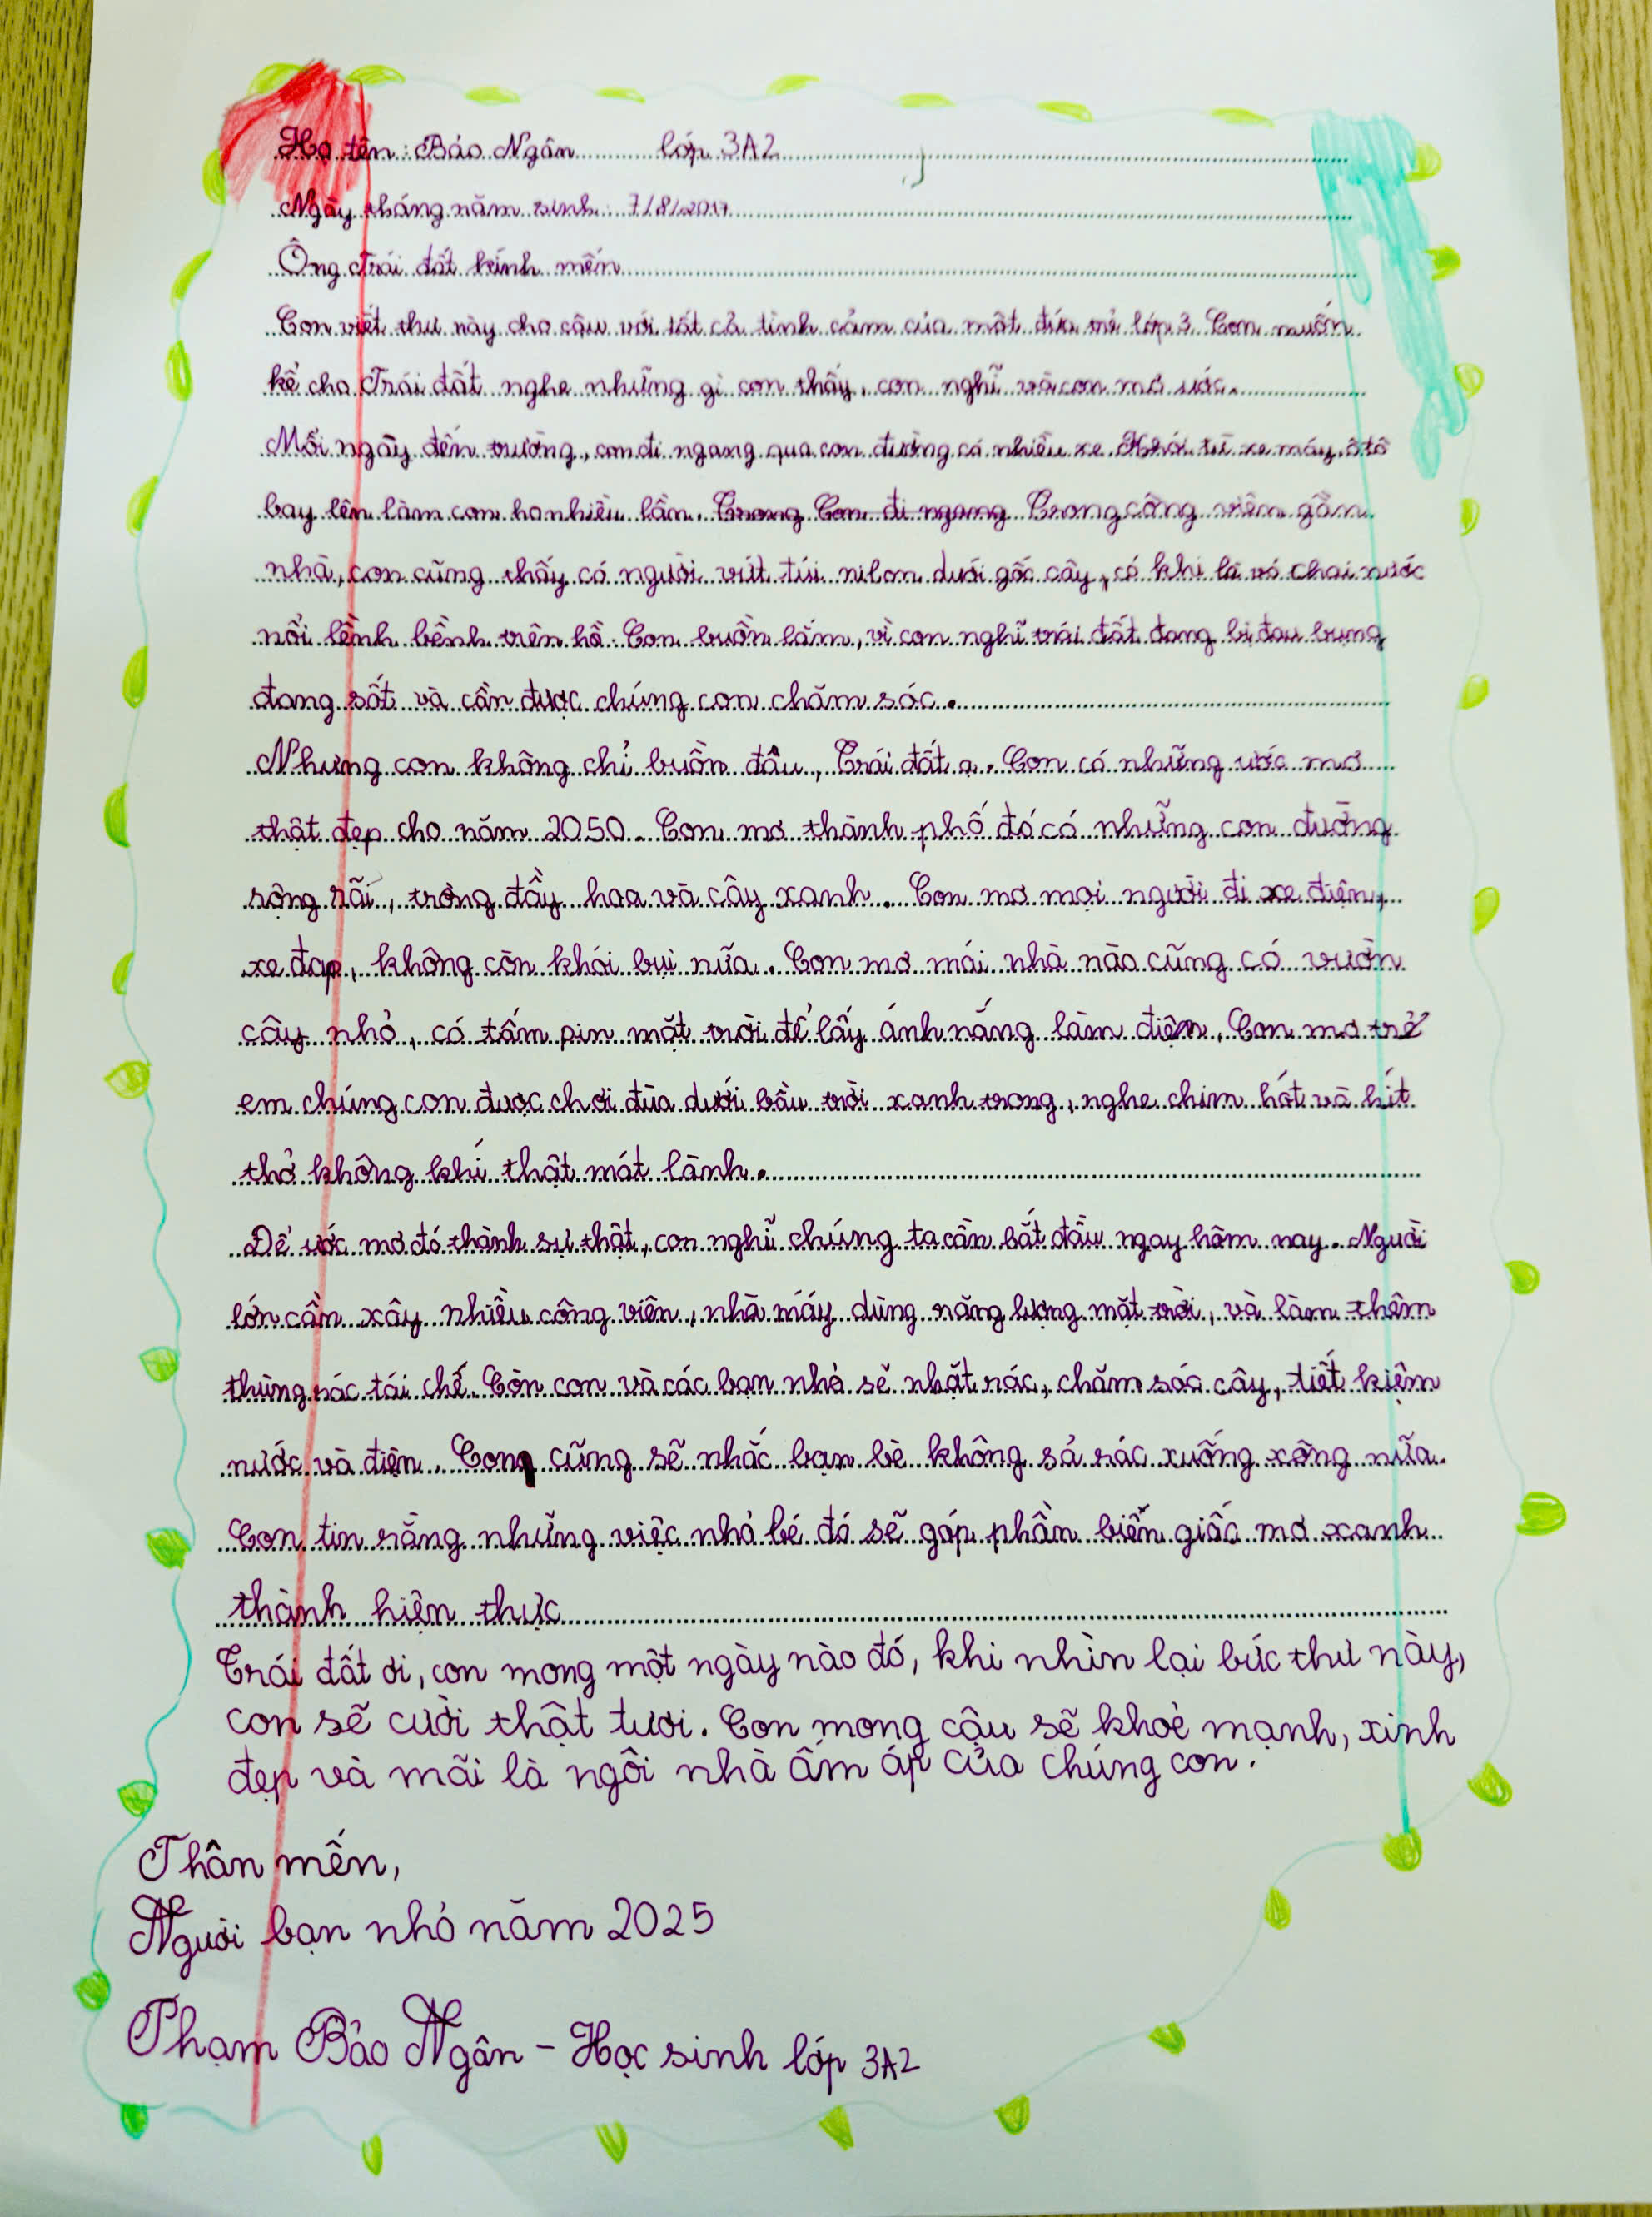 Họ tên: Bảo Ngân lớp 3A2
Ngày tháng năm sinh: 7/8/2017
Ông Trái đất kính mến
Con viết thư này cho cậu với tất cả tình cảm của một đứa trẻ lớp 3. Con muốn
kể cho Trái đất nghe những gì con thấy, con nghĩ và con mơ ước.
Mỗi ngày đến trường, con đi ngang qua con đường có nhiều xe. Khói từ xe máy, ô tô
bay lên làm con ho nhiều lần. Trong Con đi ngang Trong công viên gần
nhà, con cũng thấy có người vứt túi nilon dưới gốc cây, có khi là vỏ chai nước
nổi lềnh bềnh trên hồ. Con buồn lắm, vì con nghĩ trái đất đang bị đau bụng
đang sốt và cần được chúng con chăm sóc.
Nhưng con không chỉ buồn đâu, Trái đất ạ. Con có những ước mơ
thật đẹp cho năm 2050. Con mơ thành phố đó có những con đường
rộng rãi, trồng đầy hoa và cây xanh. Con mơ mọi người đi xe điện,
xe đạp, không còn khói bụi nữa. Con mơ mái nhà nào cũng có vườn
cây nhỏ, có tấm pin mặt trời để lấy ánh nắng làm điện. Con mơ trẻ
em chúng con được chơi đùa dưới bầu trời xanh trong, nghe chim hót và hít
thở không khí thật mát lành.
Để ước mơ đó thành sự thật, con nghĩ chúng ta cần bắt đầu ngay hôm nay. Người
lớn cần xây nhiều công viên, nhà máy dùng năng lượng mặt trời, và làm thêm
thùng rác tái chế. Còn con và các bạn nhỏ sẽ nhặt rác, chăm sóc cây, tiết kiệm
nước và điện. Con cũng sẽ nhắc bạn bè không sả rác xuống xông nữa.
Con tin rằng những việc nhỏ bé đó sẽ góp phần biến giấc mơ xanh
thành hiện thực
Trái đất ơi, con mong một ngày nào đó, khi nhìn lại bức thư này,
con sẽ cười thật tươi. Con mong cậu sẽ khoẻ mạnh, xinh
đẹp và mãi là ngôi nhà ấm áp của chúng con.
Thân mến,
Người bạn nhỏ năm 2025
Phạm Bảo Ngân - Học sinh lớp 3A2